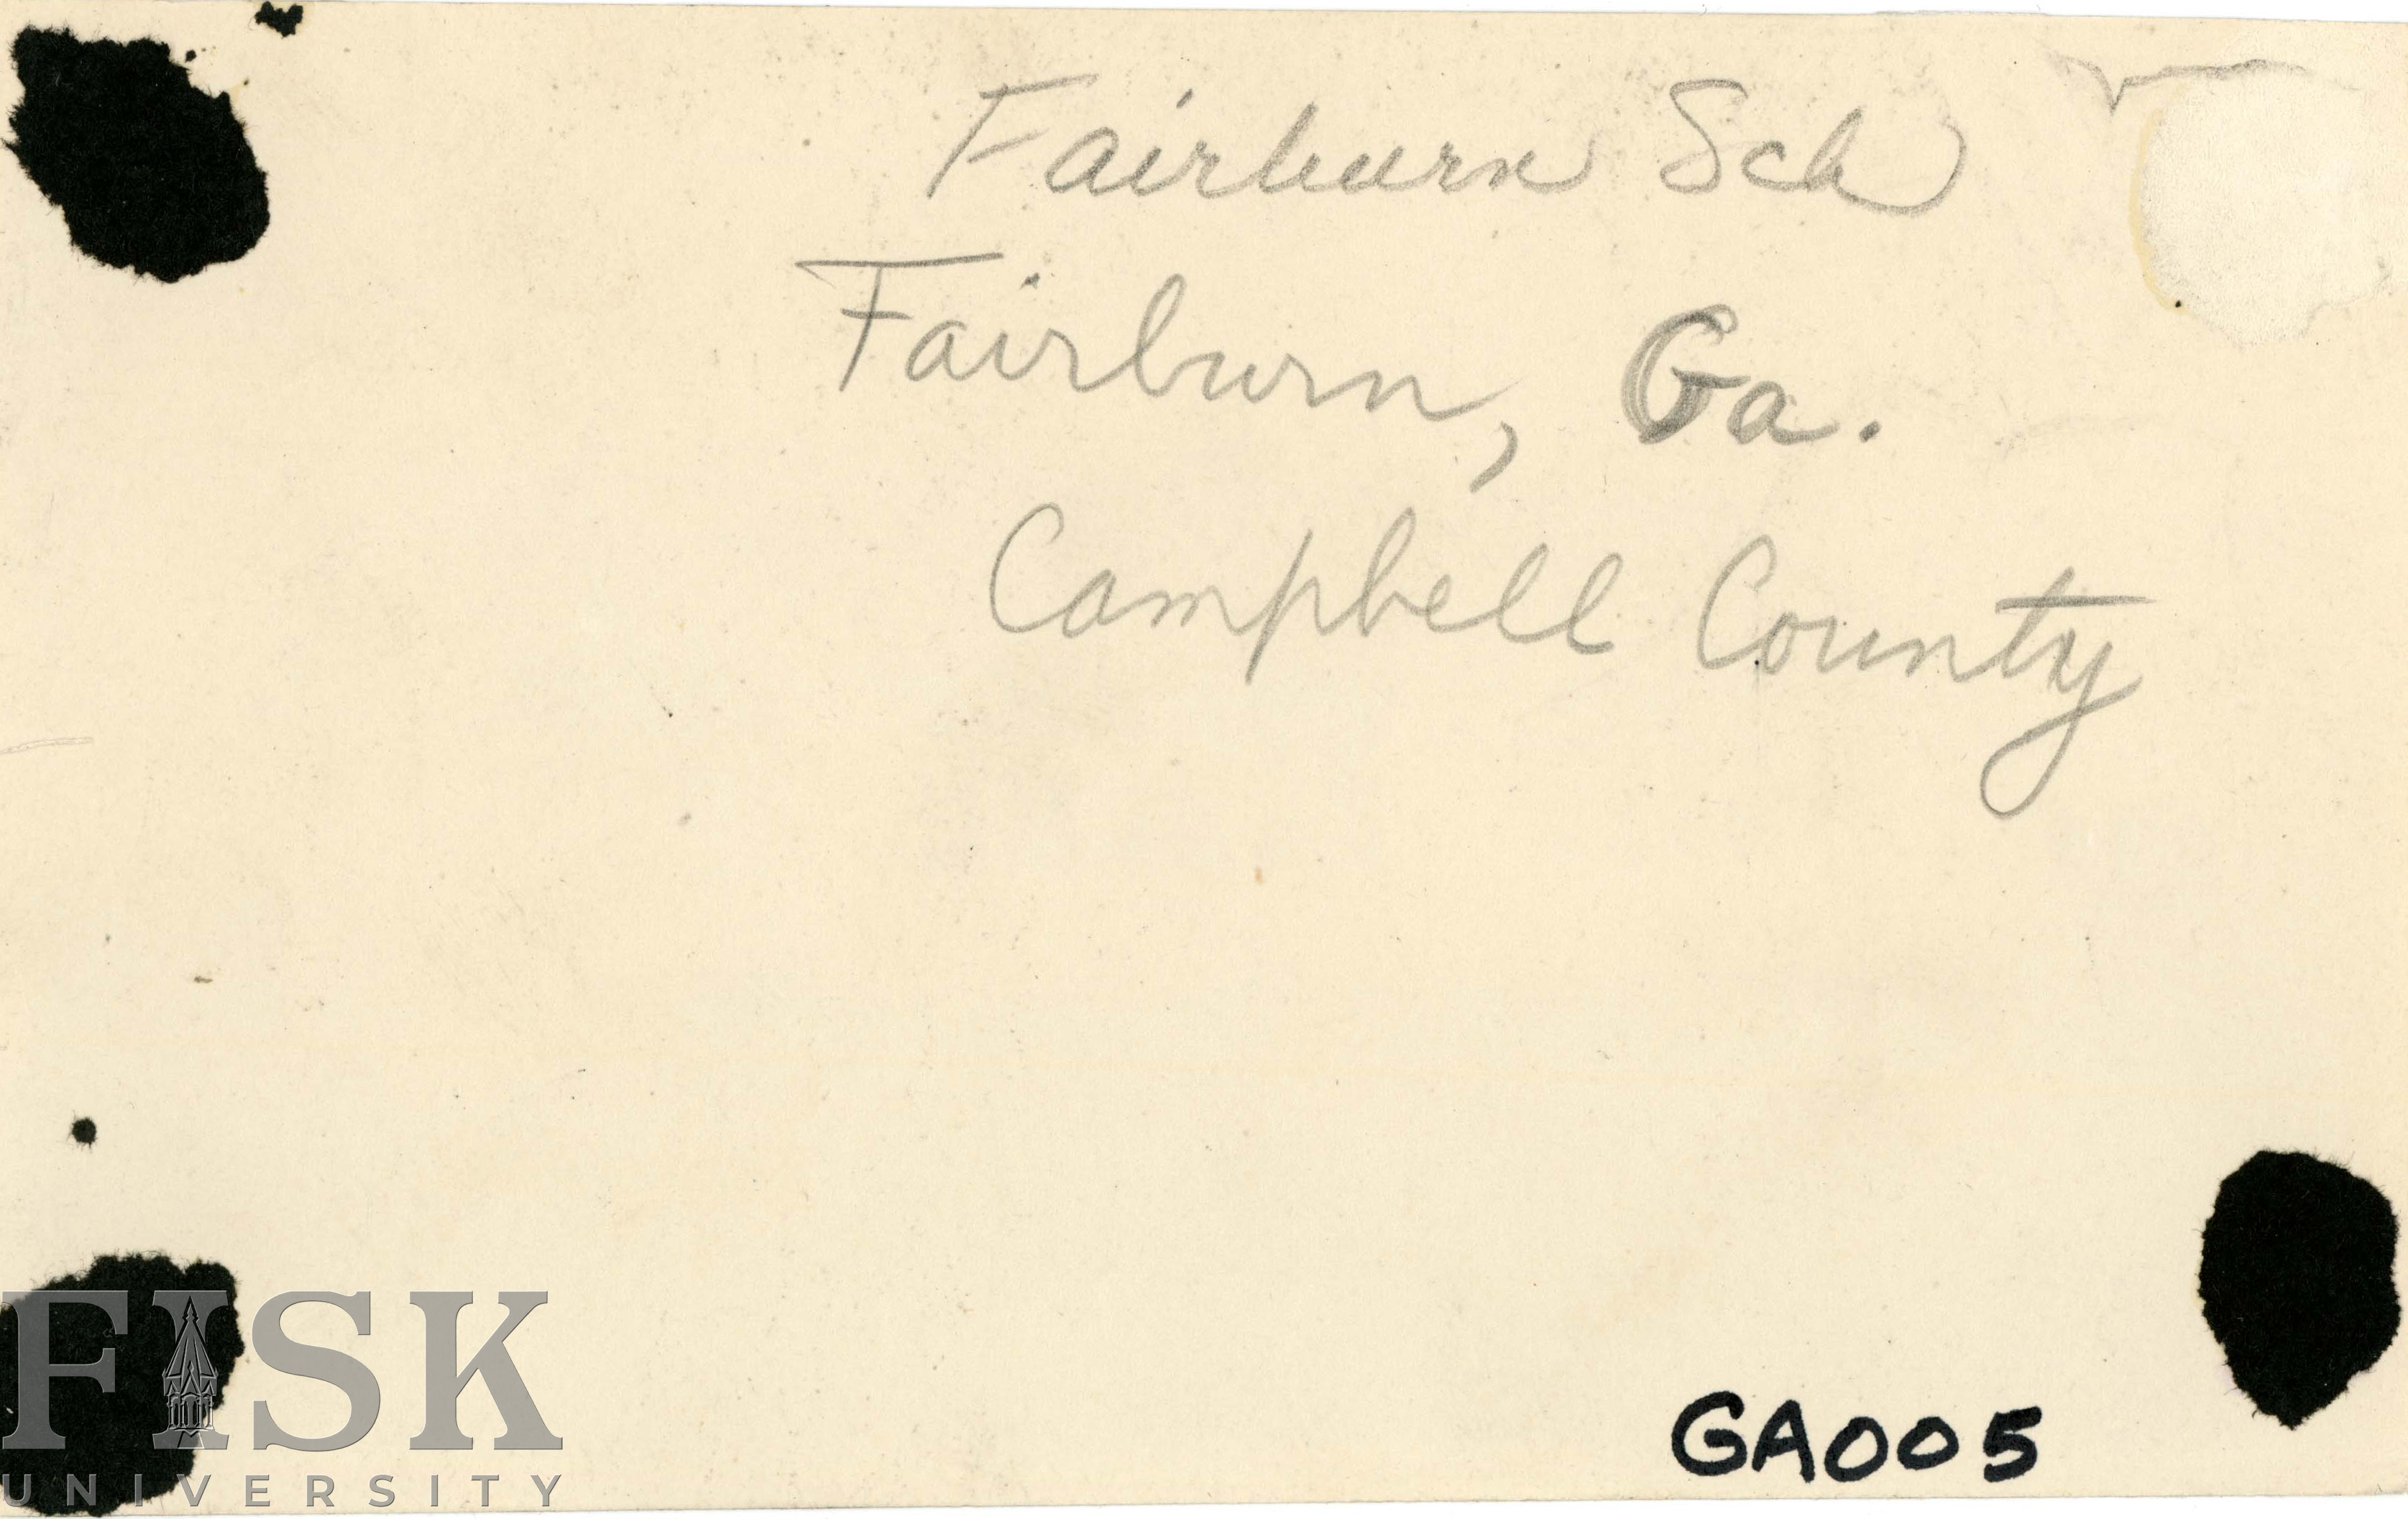 Fairburn Sch
Fairburn, Ga.
Campbell County
GA005
FISK
UNIVERSITY